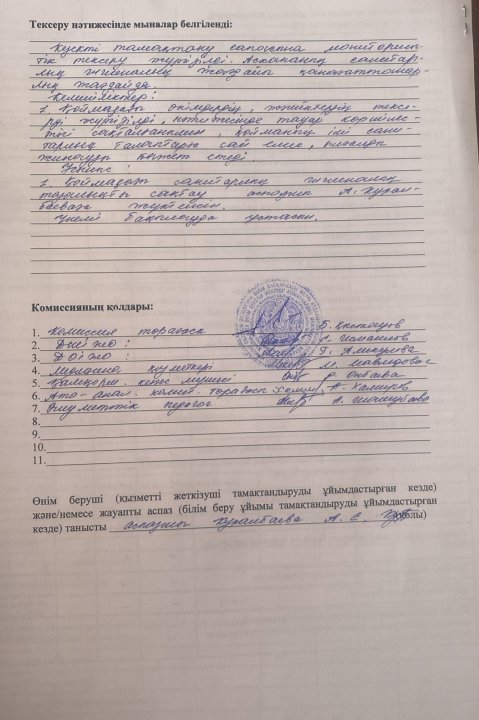 Тексеру нәтижесінде мыналар белгіленді:
Күнгі тамақтану сапасына мониторинг-
тік тексеру жүргізілді. Асхананың санитар-
лық гигиеналық жағдайы қанағаттанар-
лық жағдайда.
Кемшіліктер:
1. Қоймадағы өнімдердің, тексе-
ру жүргізілді, нәтижесінде тауар көршілес-
тігі сақталмаған, қойманың іші сани-
тариялық талаптарға сай емес,
жинауды қажет етеді.
Ұсыныс
1. Қоймадағы санитарлық гигиеналық
тазалықты сақтау аспазшы А. Құрал-
баеваға жүктелсін.
Үнемі бақылауда ұсталсын.
Комиссияның қолдары:
1. Комиссия төрағасы Б.
2. ДШІЖО: Исмаилов
3. ДОІЖО: Г.
4. Медицина қызметкері М.
5. Қамқорш. кеңес мүшесі Р.
6. Ата-анал. комит. төрағасы А.
7. Әлеуметтік педагог А.
8.
9.
10.
11.
Өнім беруші (қызметті жеткізуші тамақтандыруды ұйымдастырған кезде)
және/немесе жауапты аспаз (білім беру ұйымы тамақтандыруды ұйымдастырған
кезде) танысты аспазшы Құралбаева А. Е. (қолы)